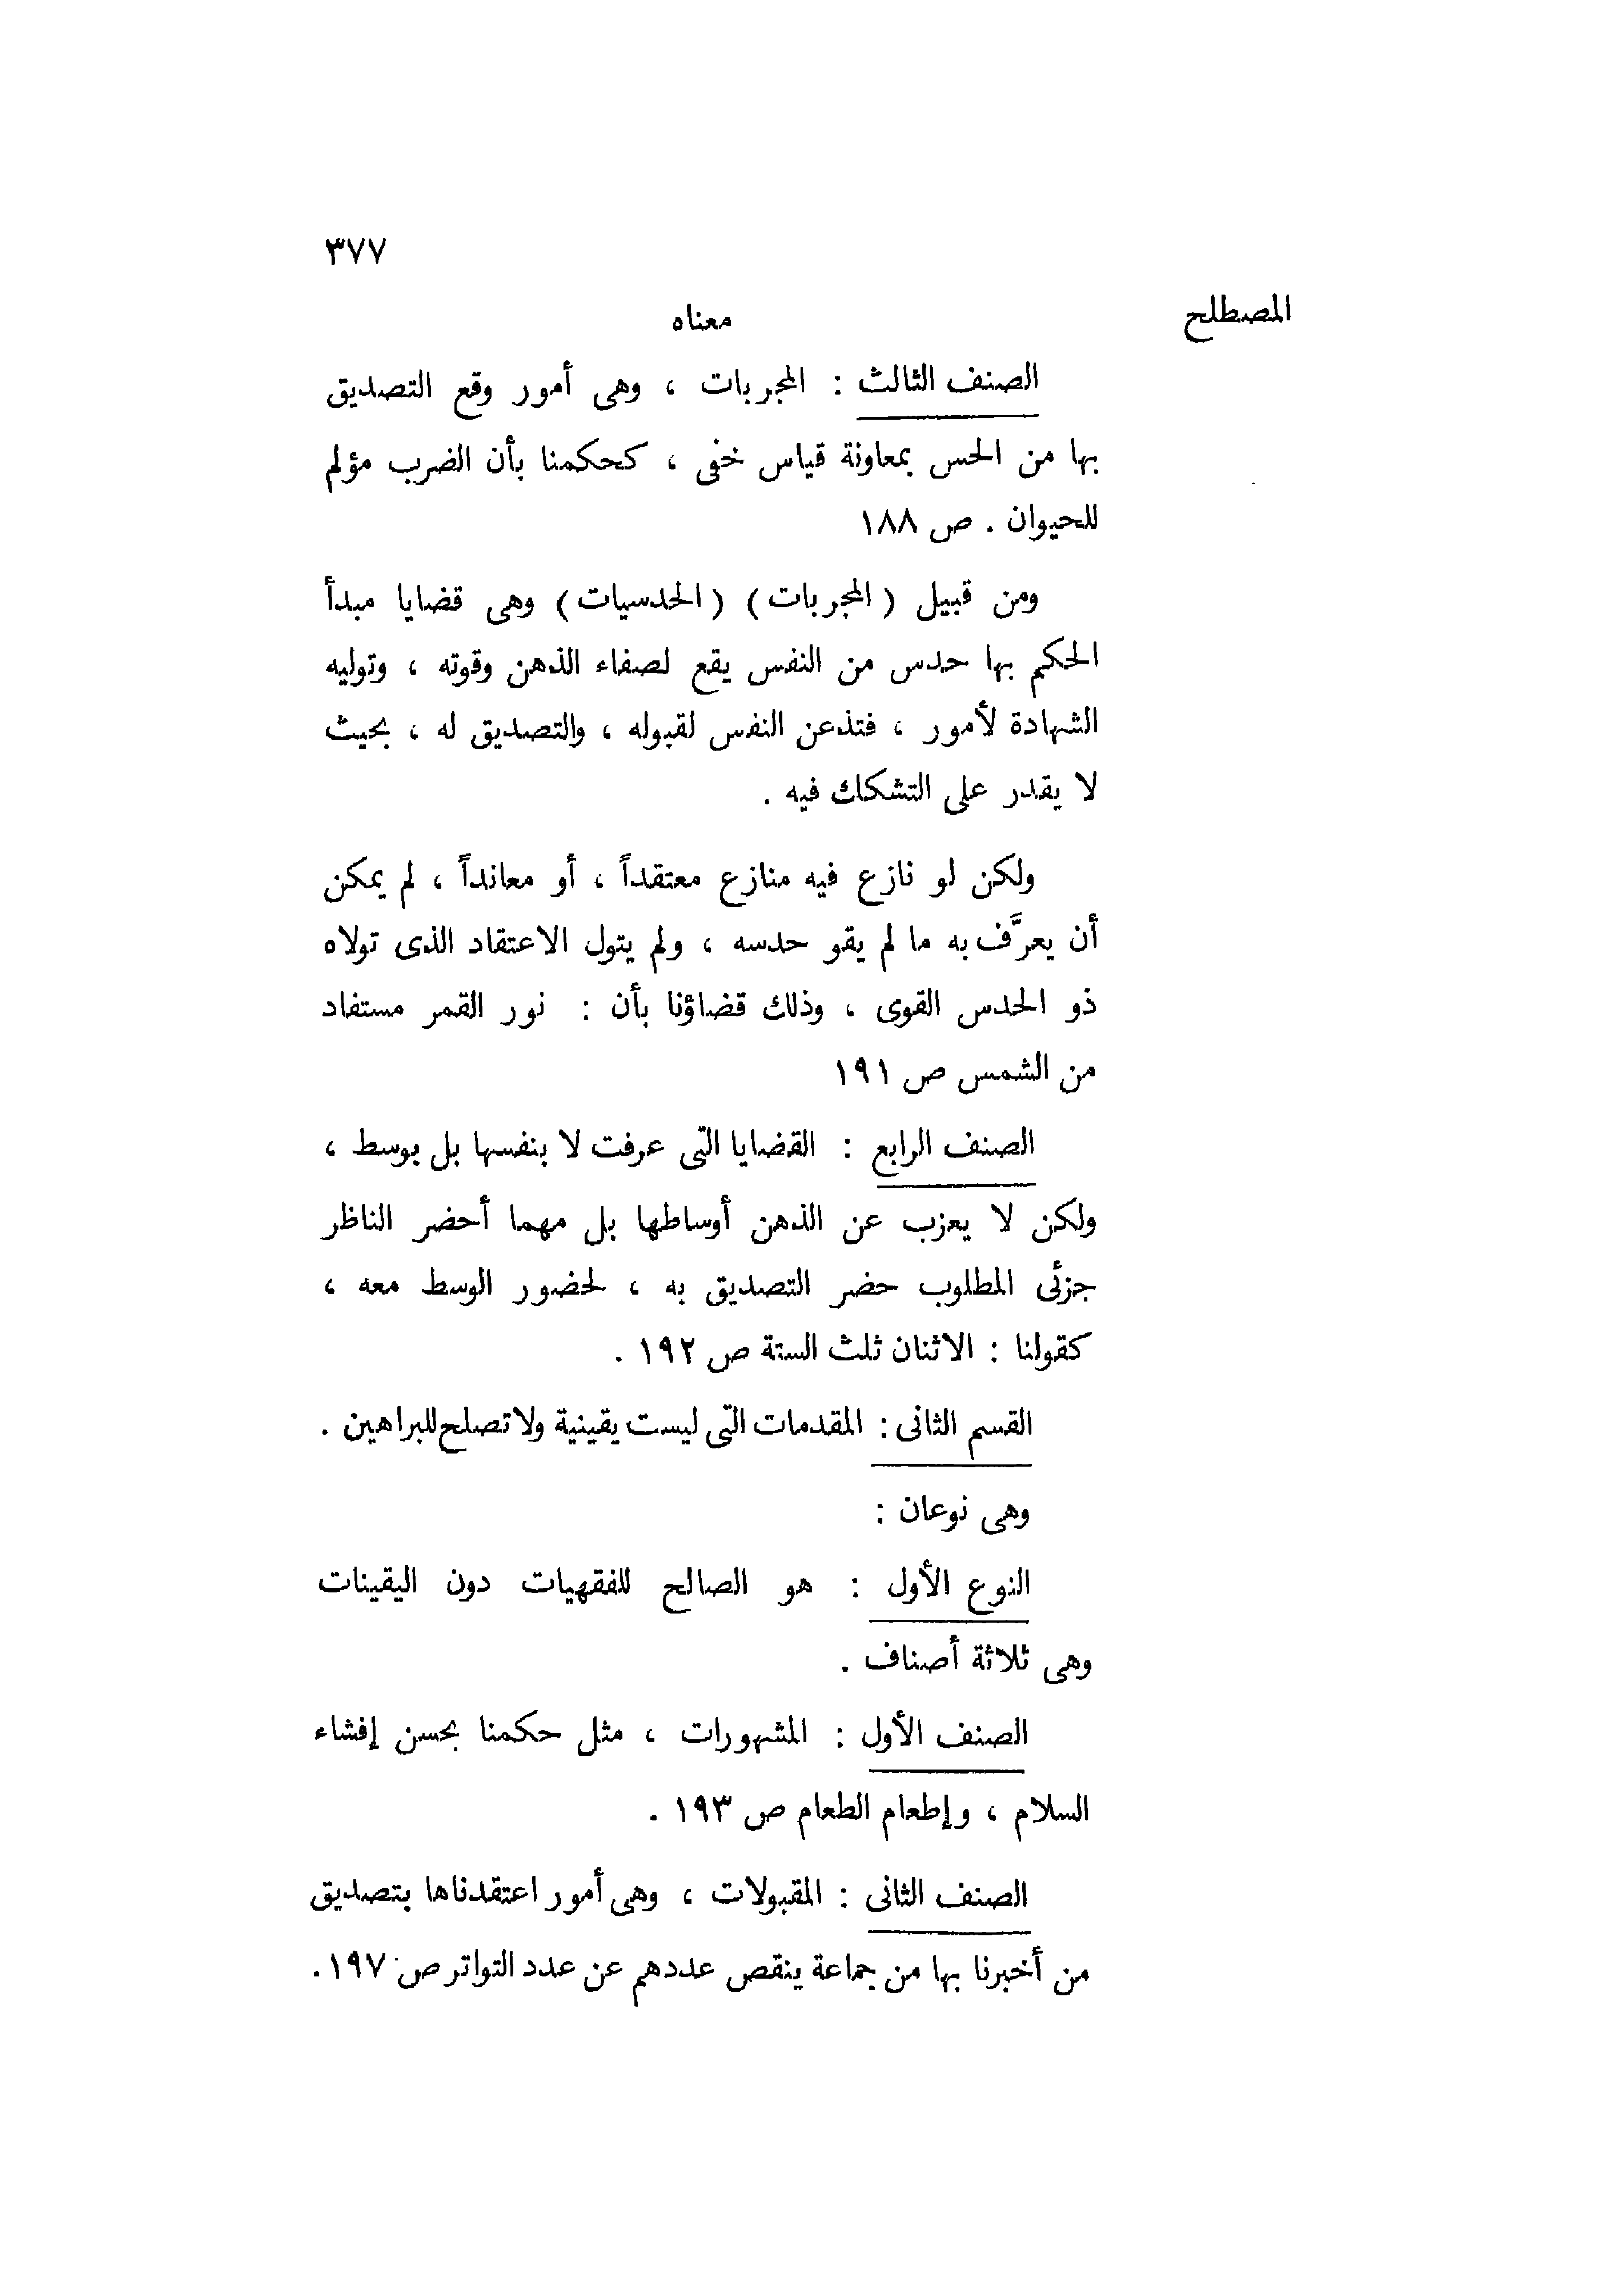 ٣٧٧
المصطلح معناه
الصنف الثالث : المجربات ، وهى أمور وقع التصديق
بها من الحس بمعاونة قياس خفى ، كحكمنا بأن الضرب مؤلم
للحيوان . ص ١٨٨
ومن قبيل ( المجربات ) ( الحدسيات ) وهى قضايا مبدأ
الحكم بها حدس من النفس يقع لصفاء الذهن وقوته ، وتوليه
الشهادة لأمور ، فتذعن النفس لقبوله ، والتصديق له ، بحيث
لا يقدر على التشكك فيه .
ولكن لو نازع فيه منازع معتقداً ، أو معانداً ، لم يمكن
أن يعرَّف به ما لم يقو حدسه ، ولم يتول الاعتقاد الذى تولاه
ذو الحدس القوى ، وذلك قضاؤنا بأن : نور القمر مستفاد
من الشمس ص ١٩١
الصنف الرابع : القضايا التى عرفت لا بنفسها بل بوسط ،
ولكن لا يعزب عن الذهن أوساطها بل مهما أحضر الناظر
جزئى المطلوب حضر التصديق به ، لحضور الوسط معه ،
كقولنا : الاثنان ثلث الستة ص ١٩٢ .
القسم الثانى : المقدمات التى ليست يقينية ولا تصلح للبراهين .
وهى نوعان :
النوع الأول : هو الصالح للفقهيات دون اليقينات
وهى ثلاثة أصناف .
الصنف الأول : المشهورات ، مثل حكمنا بحسن إفشاء
السلام ، وإطعام الطعام ص ١٩٣ .
الصنف الثانى : المقبولات ، وهى أمور اعتقدناها بتصديق
من أخبرنا بها من جماعة ينقص عددهم عن عدد التواتر ص ١٩٧ .